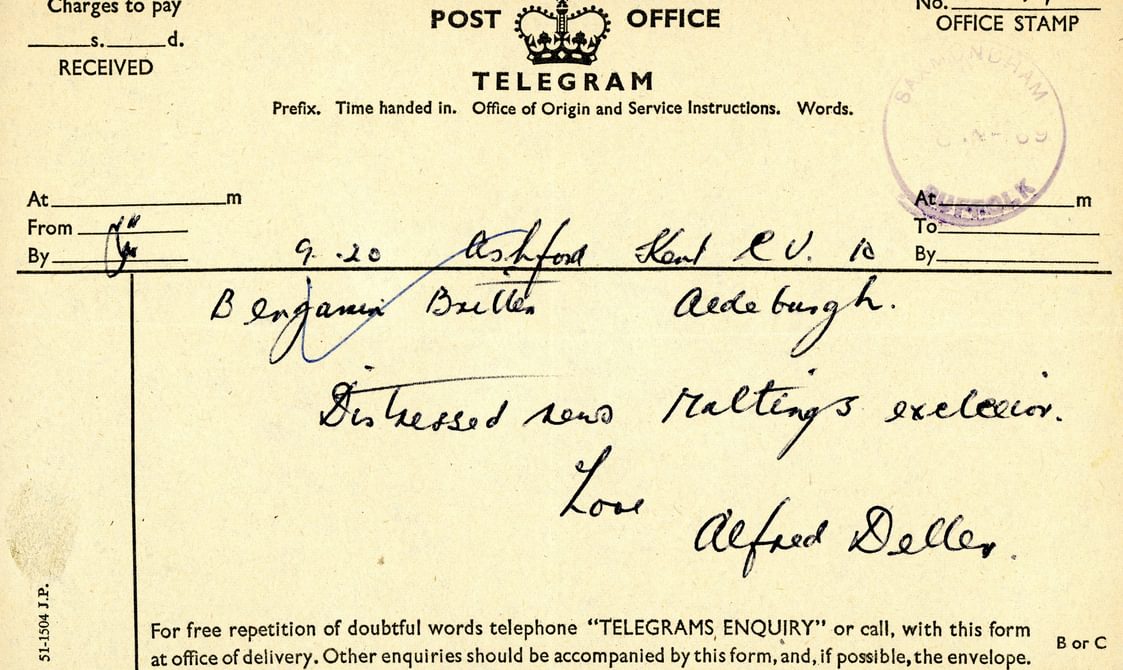 Charges to pay
s. d.
RECEIVED
POST OFFICE
TELEGRAM
Prefix. Time handed in. Office of Origin and Service Instructions. Words.
No.
OFFICE STAMP
SAXMUNDHAM
69
SUFFOLK
At m
From
By
At m
To
By
9.20 Ashford Kent 10
Benjamin Britten Aldeburgh.
Distressed news Maltings
Love
Alfred Deller.
For free repetition of doubtful words telephone “TELEGRAMS ENQUIRY” or call, with this form
at office of delivery. Other enquiries should be accompanied by this form, and, if possible, the envelope.
B or C
51-1504 J.P.